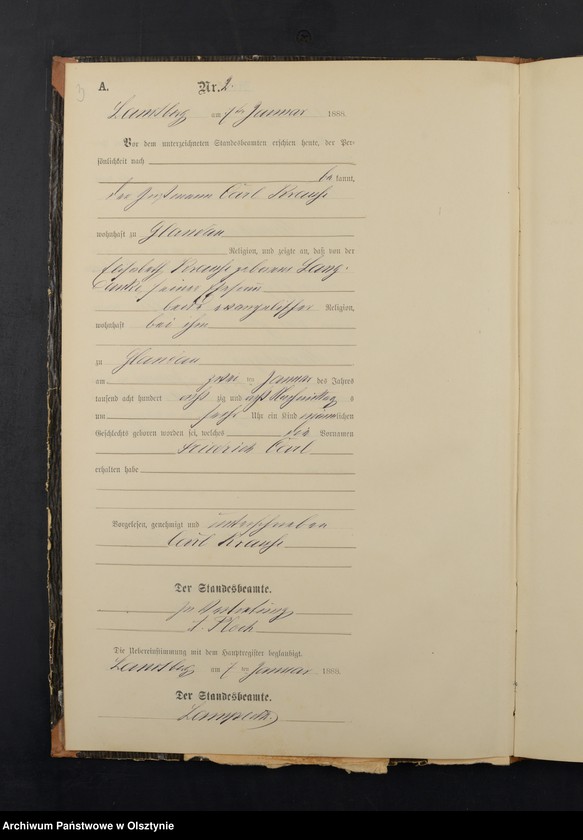 A. Nr. 2.
Landsberg am 7ten Januar 1888.
Vor dem unterzeichneten Standesbeamten erschien heute, der Per-
sönlichkeit nach
bekannt,
Carl Krause
wohnhaft zu Glandau
Religion, und zeigte an, daß von der
Elisabeth Krause geborene Lang-
seiner Ehefrau
beide evangelischer Religion,
wohnhaft bei ihm
zu Glandau
am zwei ten Januar des Jahres
tausend acht hundert acht zig und acht Nachmittags
um sechs Uhr ein Kind männlichen
Geschlechts geboren worden sei, welches die Vornamen
Friedrich Carl
erhalten habe
Vorgelesen, genehmigt und unterschrieben
Carl Krause
Der Standesbeamte.
In Vertretung
Die Uebereinstimmung mit dem Hauptregister beglaubigt.
Landsberg am 7 ten Januar 1888.
Der Standesbeamte.
Archiwum Państwowe w Olsztynie